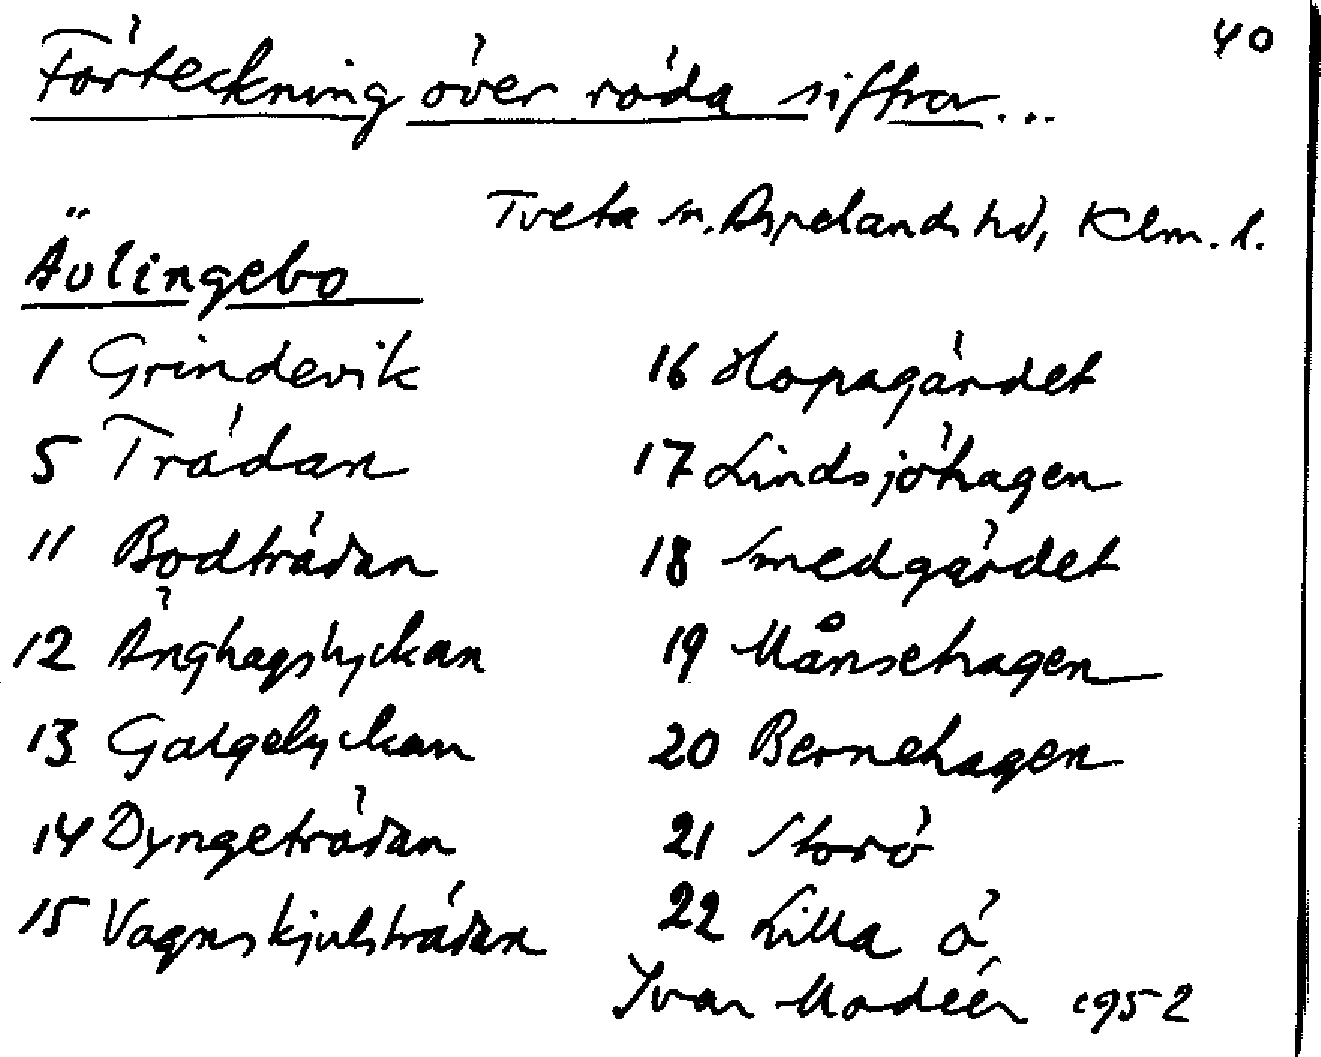 40
Förteckning över röda siffror...
Tveta sn. Aspelands hd, Klm. l.
Äulingebo
1 Grindevik
5 Trädan
11 Bodträdan
12 Änghagslyckan
13 Galgelyckan
14 Dyngeträdan
15 Vagnskjulsträdan
16 Hopagärdet
17 Lindsjöhagen
18 Smedgärdet
19 Månsehagen
20 Bernehagen
21 Storö
22 Lilla ö
Ivar Modéer 1952